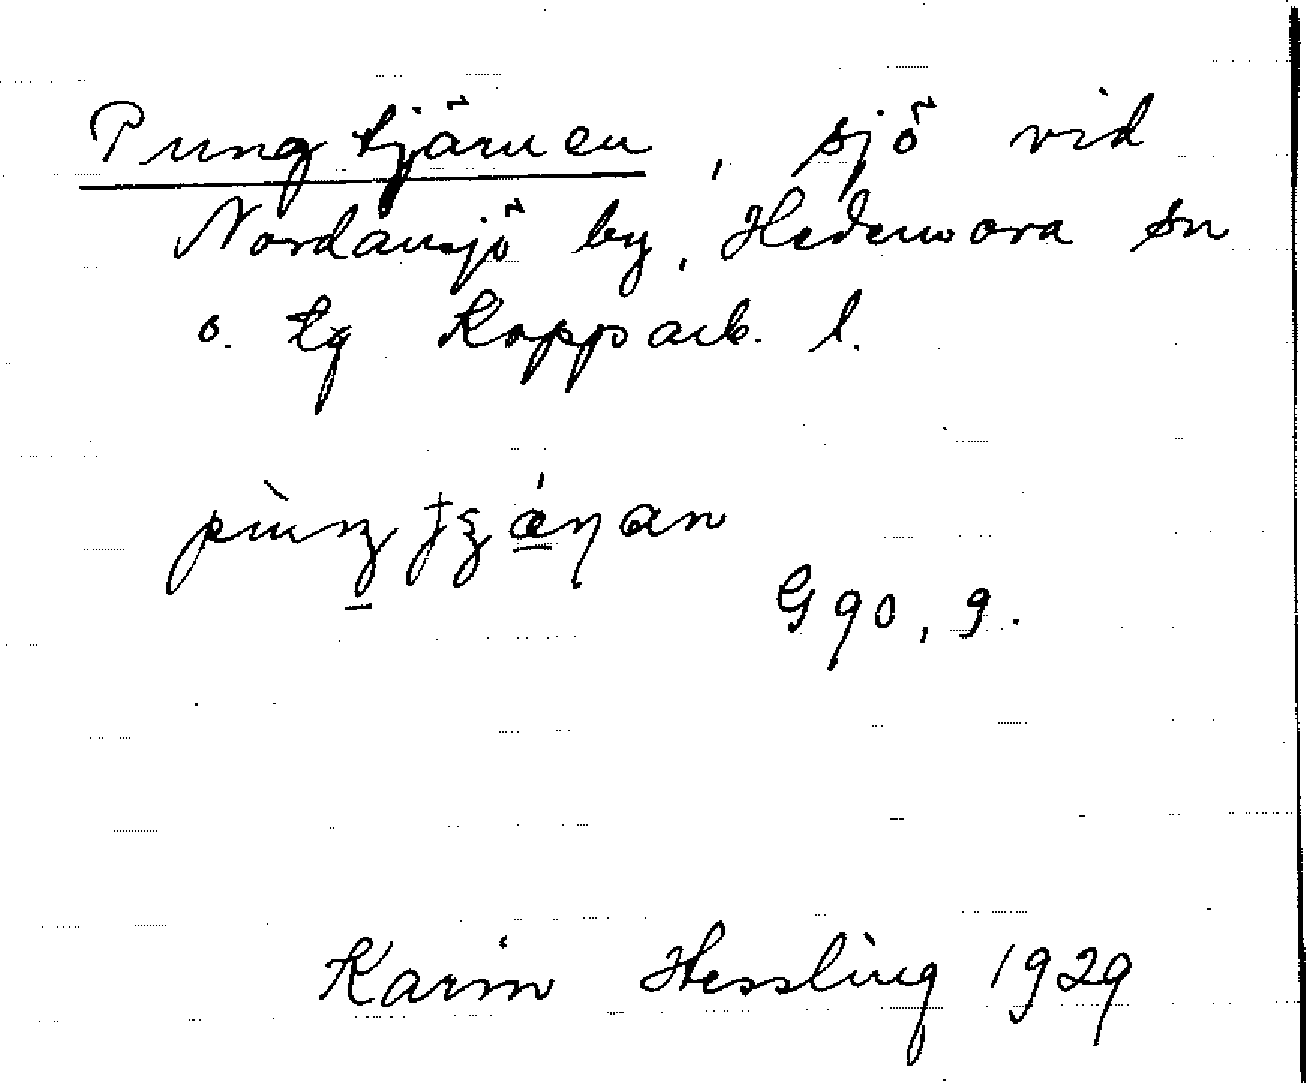 Pungtjärnen, sjö vid
Nordansjö by, Hedemora sn
o. tg Kopparb. l.
G 90, 9.
Karin Hessling 1929